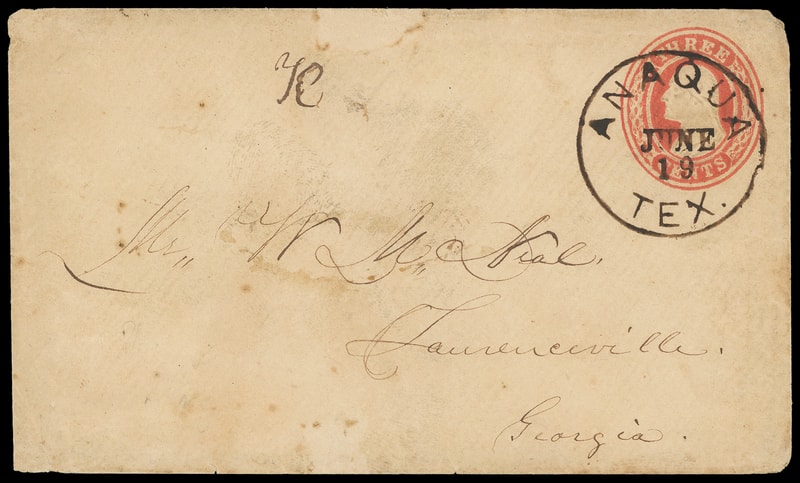 THREE
CENTS
ANAQUA
JUNE
19
TEX.
Mr,, W Mc,, Neal.
Laurenceville.
Georgia.